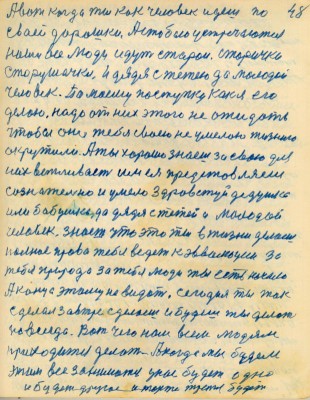 48
А вот когда ты как человек идеш по
своей дорожки, А тебе встречаются
наши все люди идут старои, старички
старушачки, и дядя с тетею да молодой
человек. По моему поступку как я его
делаю, надо от них этого не ожидать
чтобы они тебя своею не умелою жизнею
окрутили. А ты хорошо знаеш за свою дел
их вспливает им ея представляем
сознательно и умело Здравствуй дедушка
или бабушка, да дядя с тетей и молодой
человек. знает что это ты в жизни делаеш
полное права тебя ведет к эволюции за
тебя природа за тебя люди ты есть начало
А конца этому не видать, сегодня ты так
сделал завтра сделаеш и будеш ты делать
навсегда. Вот чего нам всем людям
приходится делать. А когда мы будем
этим все заниматся у нас будет одно
и будет другое и таким третья будет